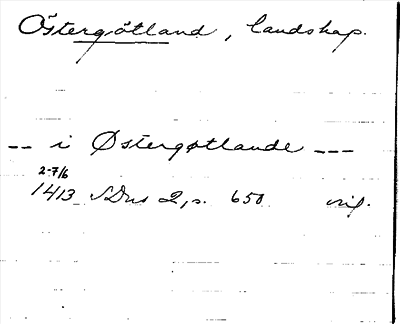 Östergötland, landskap.
-- i Østergøtlande ---
2-7/6
1413 SDns 2, s. 650 orig.